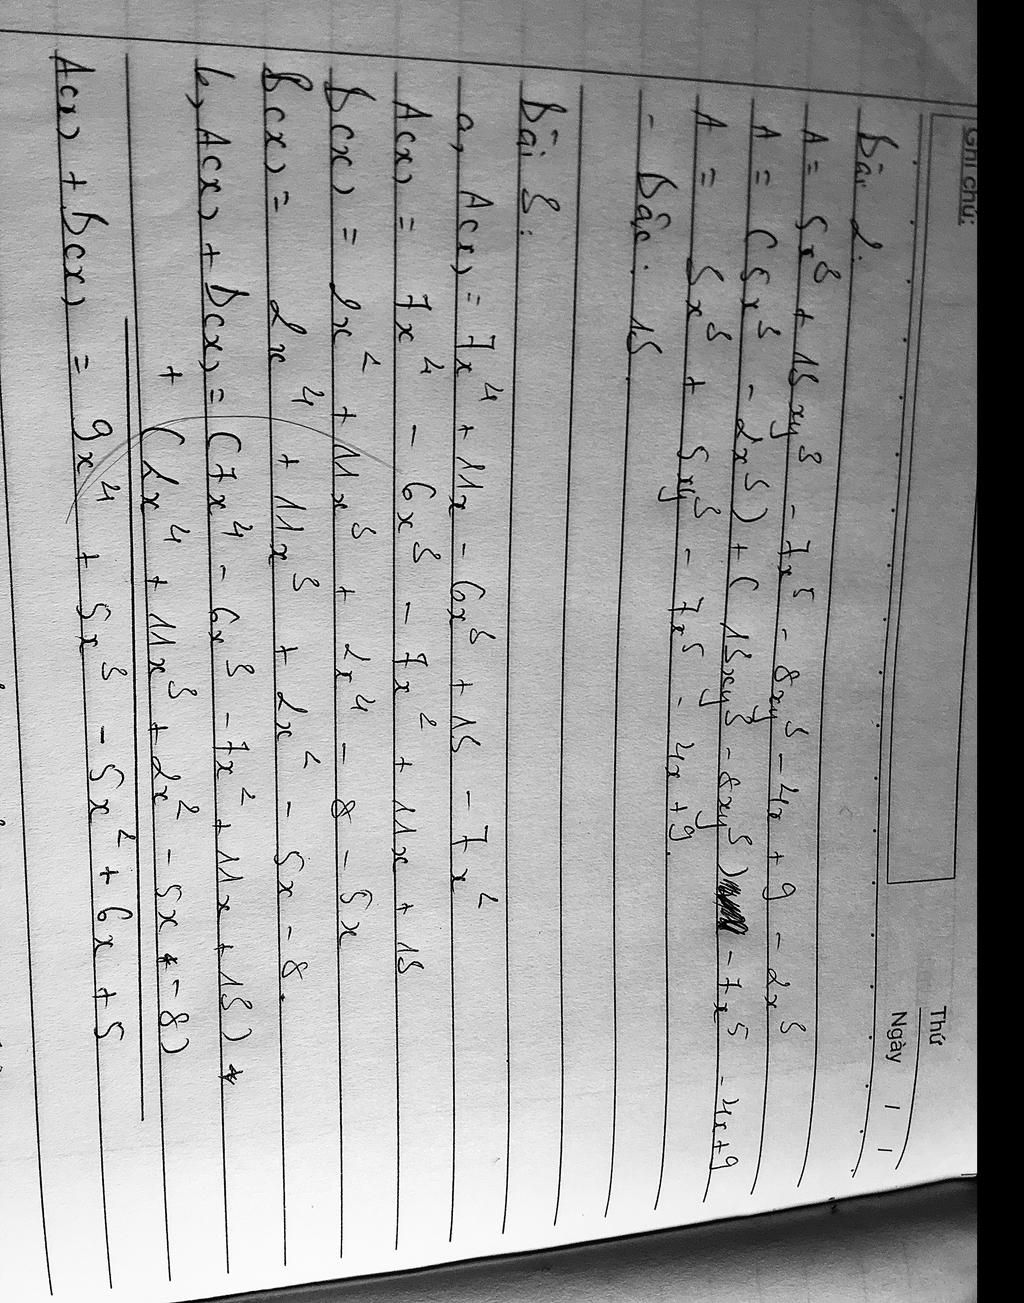 Ghi chú:
Thứ
Ngày / /
Bài 2:
A = 5x³ + 13xy³ - 7x⁵ - 8xy³ - 4x + 9 - 2x³
A = (5x³ - 2x³) + (13xy³ - 8xy³) - 7x⁵ - 4x + 9
A = 3x³ + 5xy³ - 7x⁵ - 4x + 9.
- Bậc: 15
Bài 3:
a, A(x) = 7x⁴ + 11x - 6x³ + 13 - 7x²
A(x) = 7x⁴ - 6x³ - 7x² + 11x + 13
B(x) = 2x² + 11x³ + 2x⁴ - 8 - 5x
B(x) = 2x⁴ + 11x³ + 2x² - 5x - 8.
b, A(x) + B(x) = (7x⁴ - 6x³ - 7x² + 11x + 13) +
+ (2x⁴ + 11x³ + 2x² - 5x - 8)
A(x) + B(x) = 9x⁴ + 5x³ - 5x² + 6x + 5